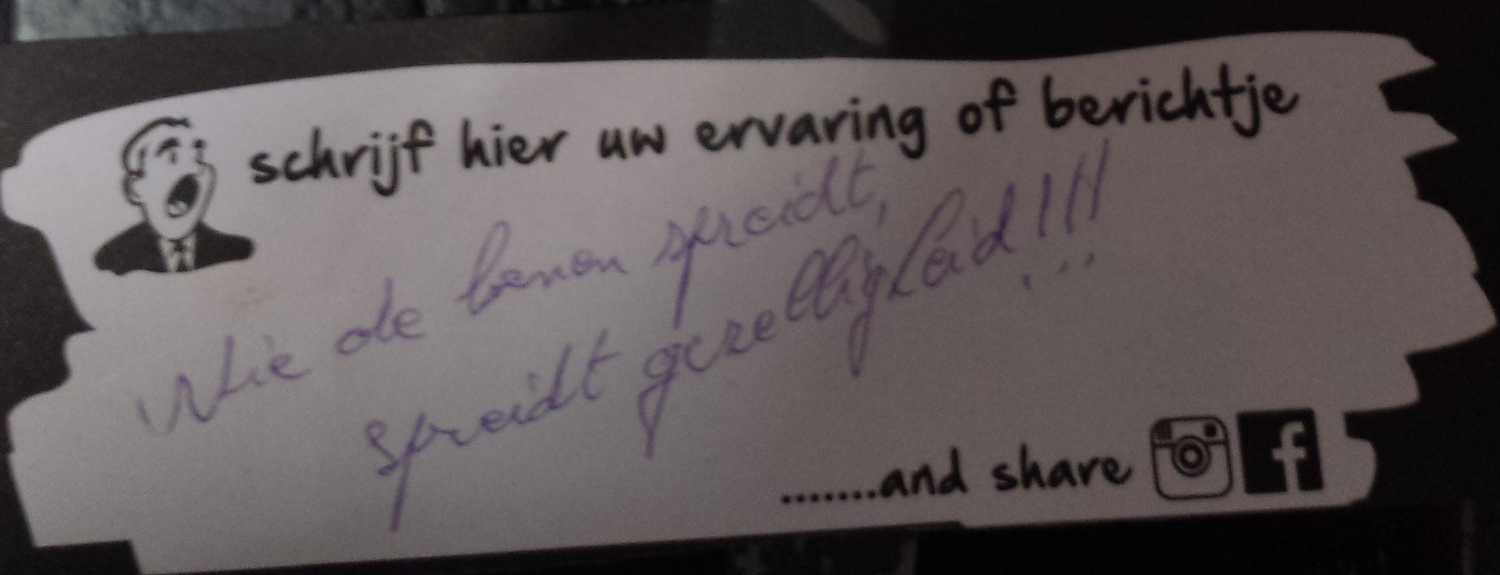 schrijf hier uw ervaring of berichtje
Wie de benen spreidt,
spreidt gezelligheid!!!
.......and share f